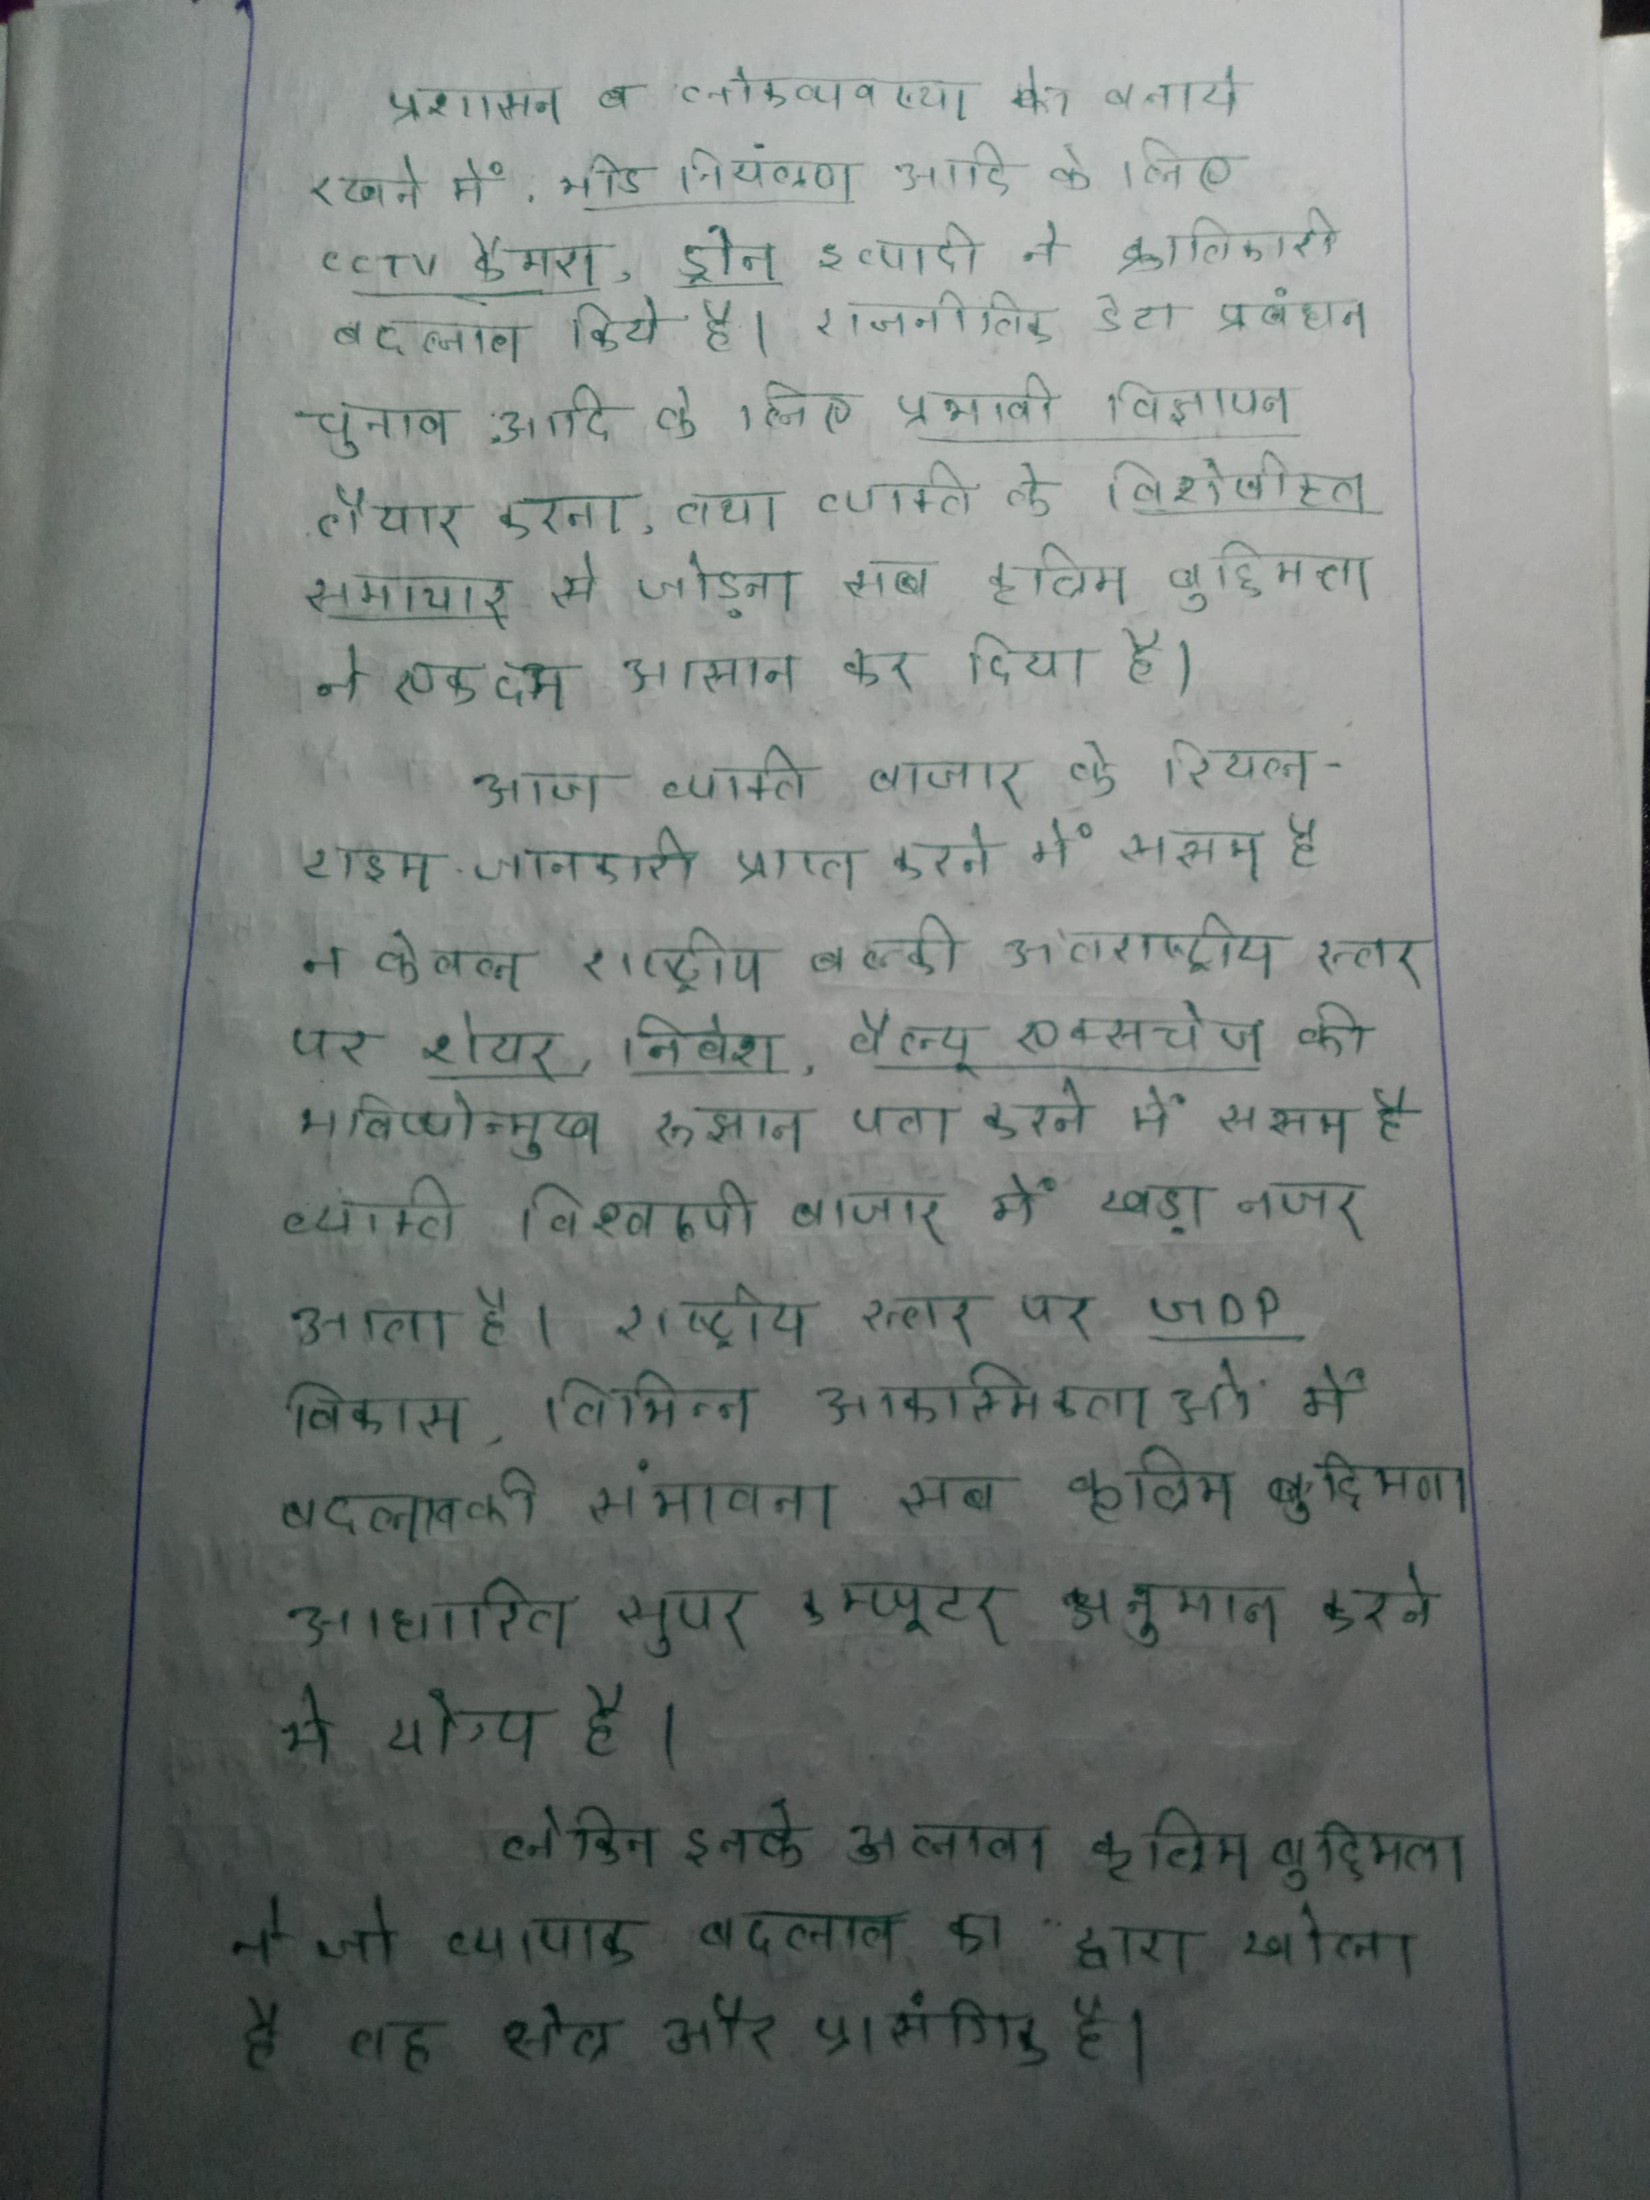 प्रशासन व लोकव्यवस्था को बनाये
रखने में, भीड नियंत्रण आदि के लिए
CCTV कैमरा, ड्रोन इत्यादी ने क्रातिकारी
बदलाव किये है। राजनीतिक डेटा प्रबंधन
चुनाव आदि के लिए प्रभावी विज्ञापन
तैयार करना, तथा व्यक्ति के विशेषीकृत
समाचार से जोड़ना सब कृत्रिम बुद्दिमत्ता
ने एकदम आसान कर दिया है।
आज व्यक्ति बाजार के रियल-
टाइम जानकारी प्राप्त करने में सक्षम है
न केवल राष्ट्रीय बल्की अंतराष्ट्रीय स्तर
पर शेयर, निवेश, वैल्यू एक्सचेंज की
भविष्योन्मुख रूझान पता करने में सक्षम है
व्यक्ति विश्वरूपी बाजार में खड़ा नजर
आता है। राष्ट्रीय स्तर पर GDP
विकास, विभिन्न आकास्मिकताओं में
बदलावकी संभावना सब कृत्रिम बुद्दिमता
आधारित सुपर कम्प्यूटर अनुमान करने
मे योग्य है।
लेकिन इनके अलावा कृत्रिम बुद्दिमता
ने जो व्यापाक बदलाव का द्वारा खोला
है वह क्षेत्र और प्रासंगिक है।